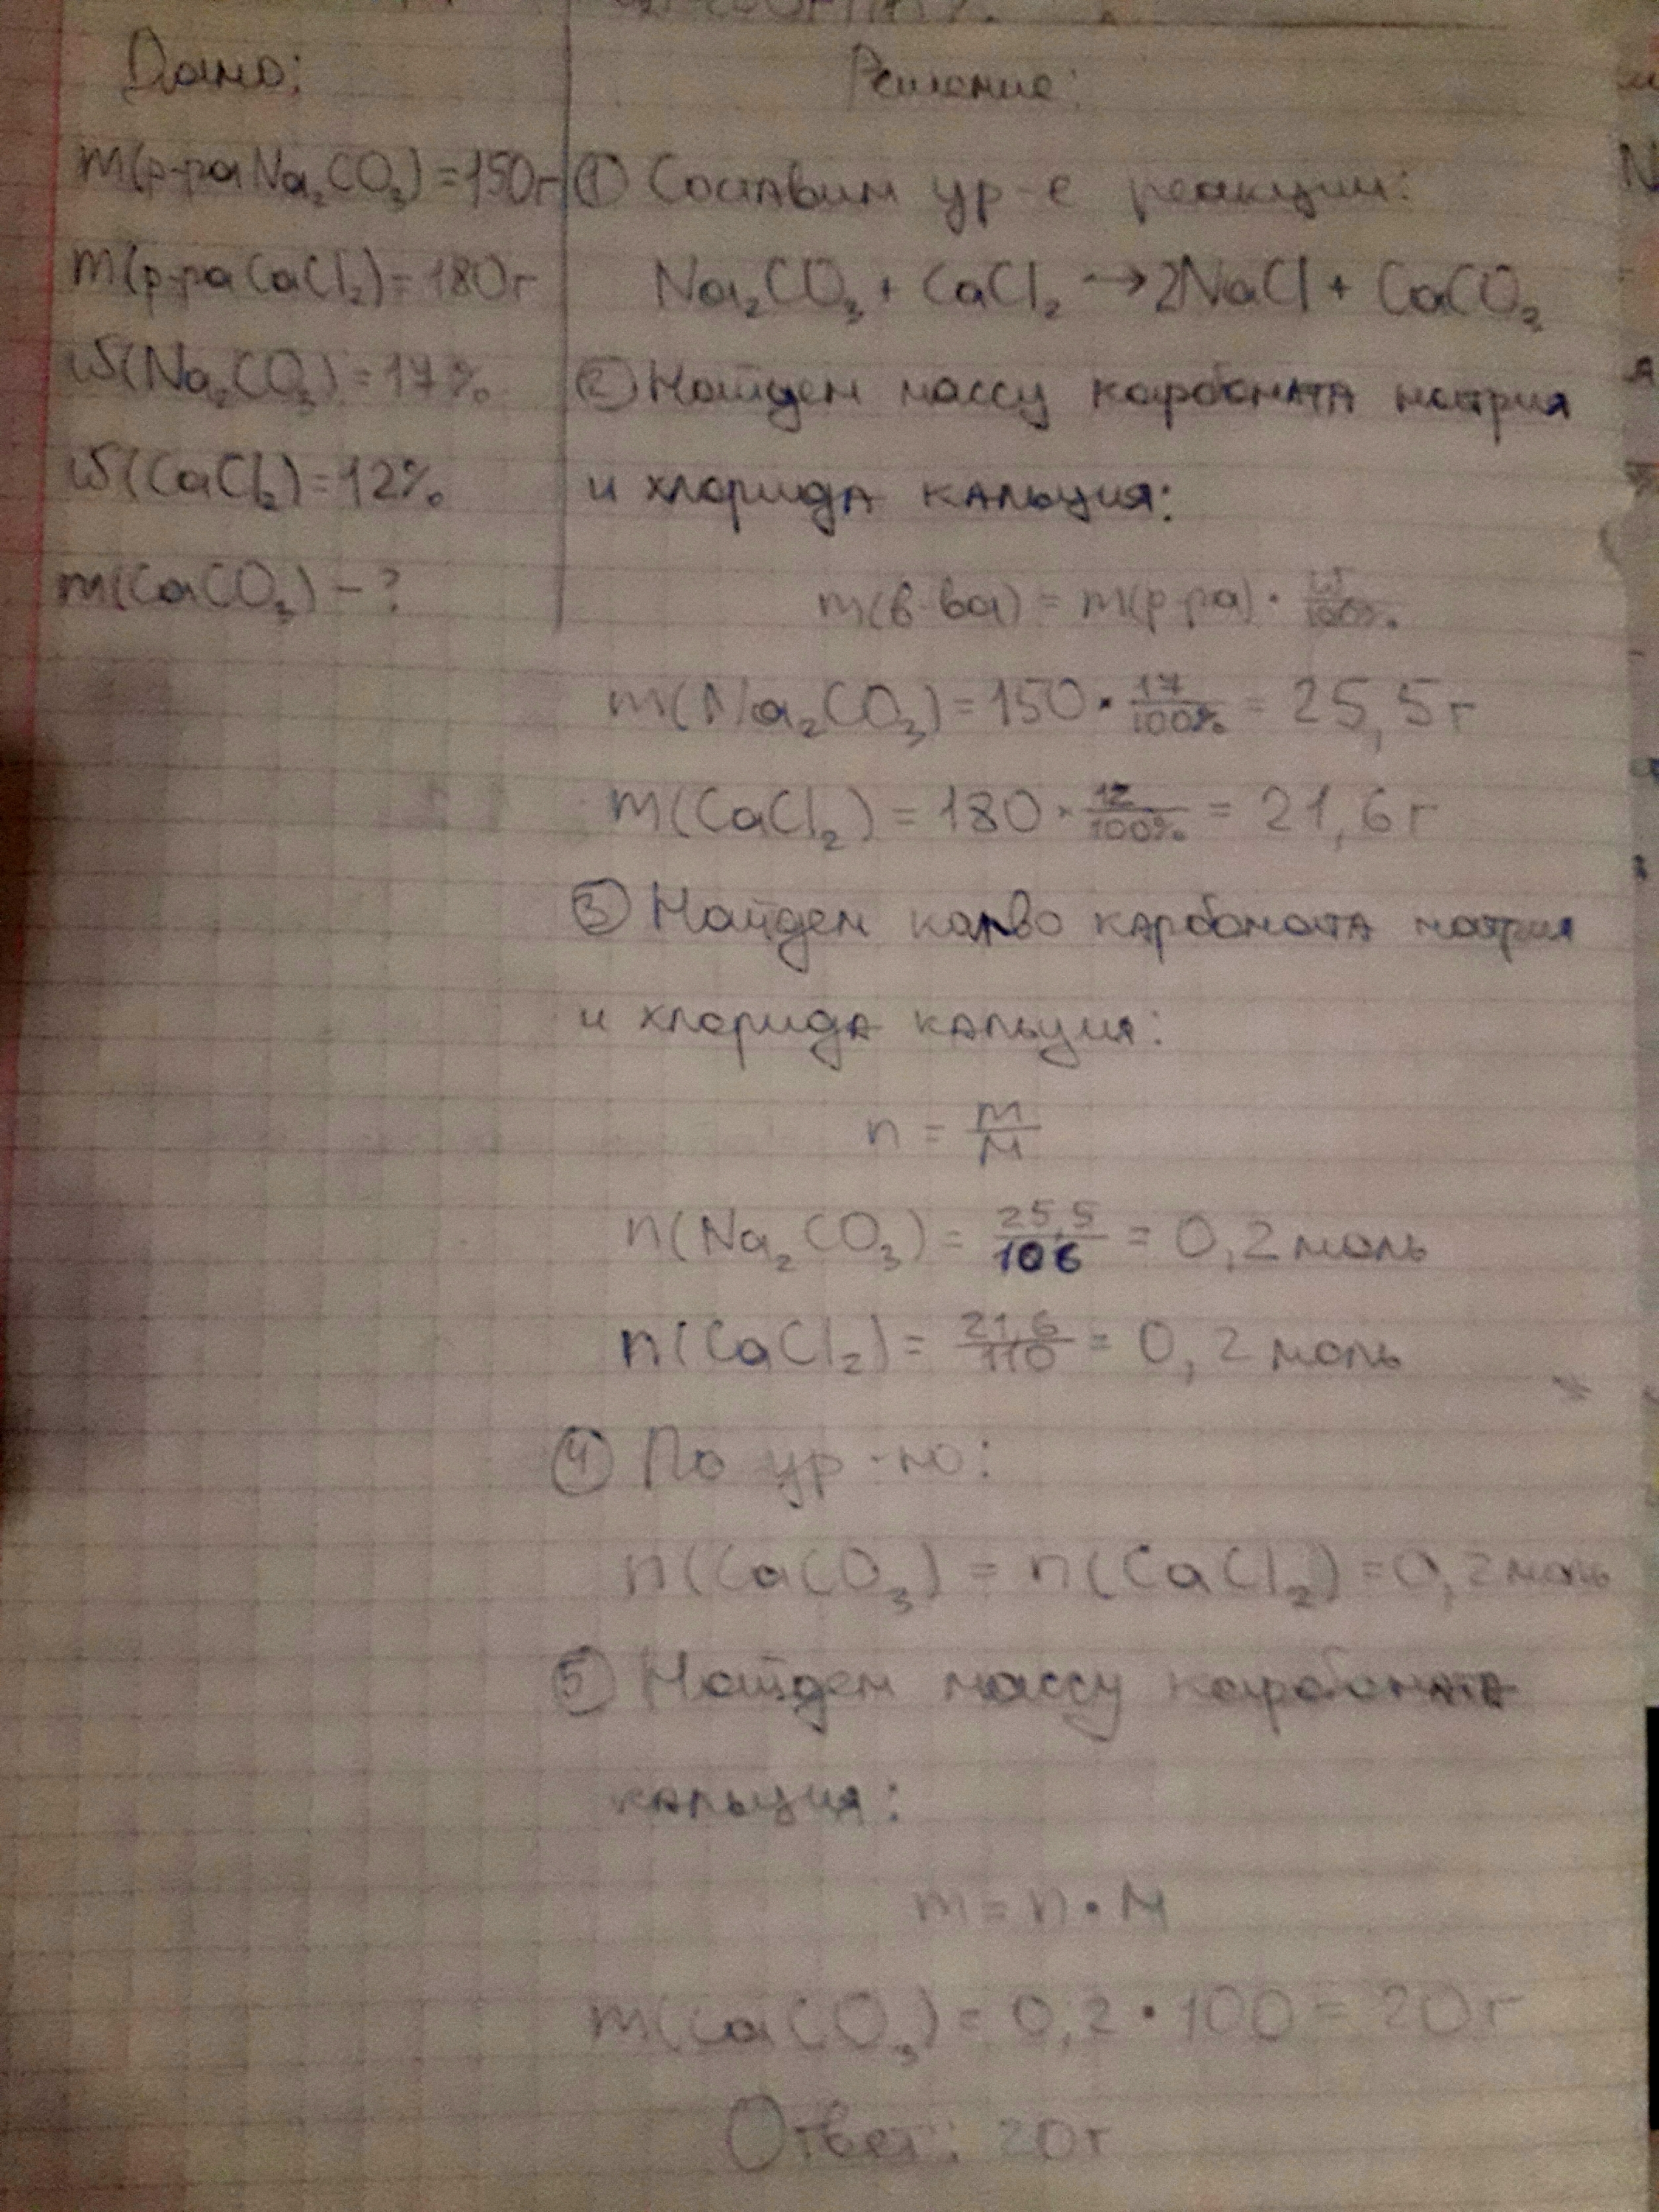 Дано:
m(р-ра Na₂CO₃) = 150г
m(р-ра CaCl₂) = 180г
ω(Na₂CO₃) = 17%
ω(CaCl₂) = 12%
m(CaCO₃) – ?
Решение:
① Составим ур-е реакции:
Na₂CO₃ + CaCl₂ → 2NaCl + CaCO₃
② Найдем массу карбоната натрия
и хлорида кальция:
m(в-ва) = m(р-ра) · ω/100%
m(Na₂CO₃) = 150 · 17/100% = 25,5г
m(CaCl₂) = 180 · 12/100% = 21,6г
③ Найдем кол-во карбоната натрия
и хлорида кальция:
n = m/M
n(Na₂CO₃) = 25,5/106 = 0,2 моль
n(CaCl₂) = 21,6/110 = 0,2 моль
④ По ур-ю:
n(CaCO₃) = n(CaCl₂) = 0,2 моль
⑤ Найдем массу карбоната
кальция:
m = n · M
m(CaCO₃) = 0,2 · 100 = 20г
Ответ: 20г